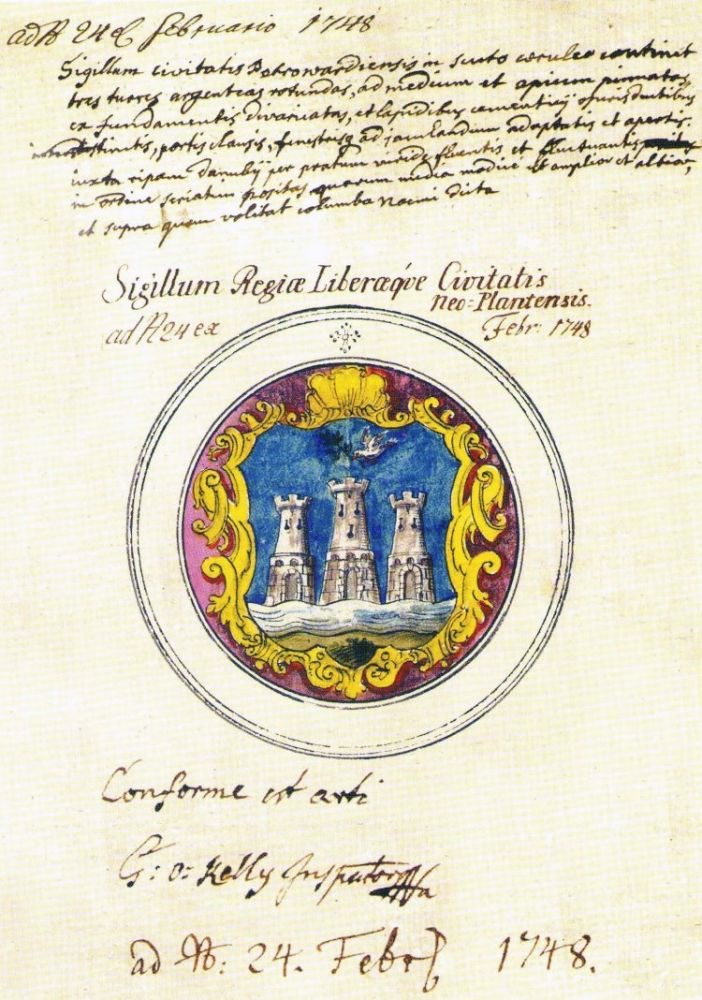 ad № 24 ex februario 1748
Sigillum civitatis Petrowardiensis in scuto cœruleo continet
tres turres argenteas rotundas, ad medium et apicem pinnatas,
ex fundamentis divaricatas, et lapidibus cæmenticijs
distinctis, portis clausis, fenestrisq ad jaculandum adaptatis et apertis.
iuxta ripam danubij per pratum viride fluentis et fluctuantis
in ordine seriatim positas quarum media modicè et amplior et altior,
et supra quam volitat columba Naëmi dicta
Sigillum Regiæ Liberæq́ve Civitatis
neo=Plantensis.
ad № 24 ex Febr: 1748
Conforme est arti
G: o: Kelly Inspector
ad №: 24. Febr 1748.